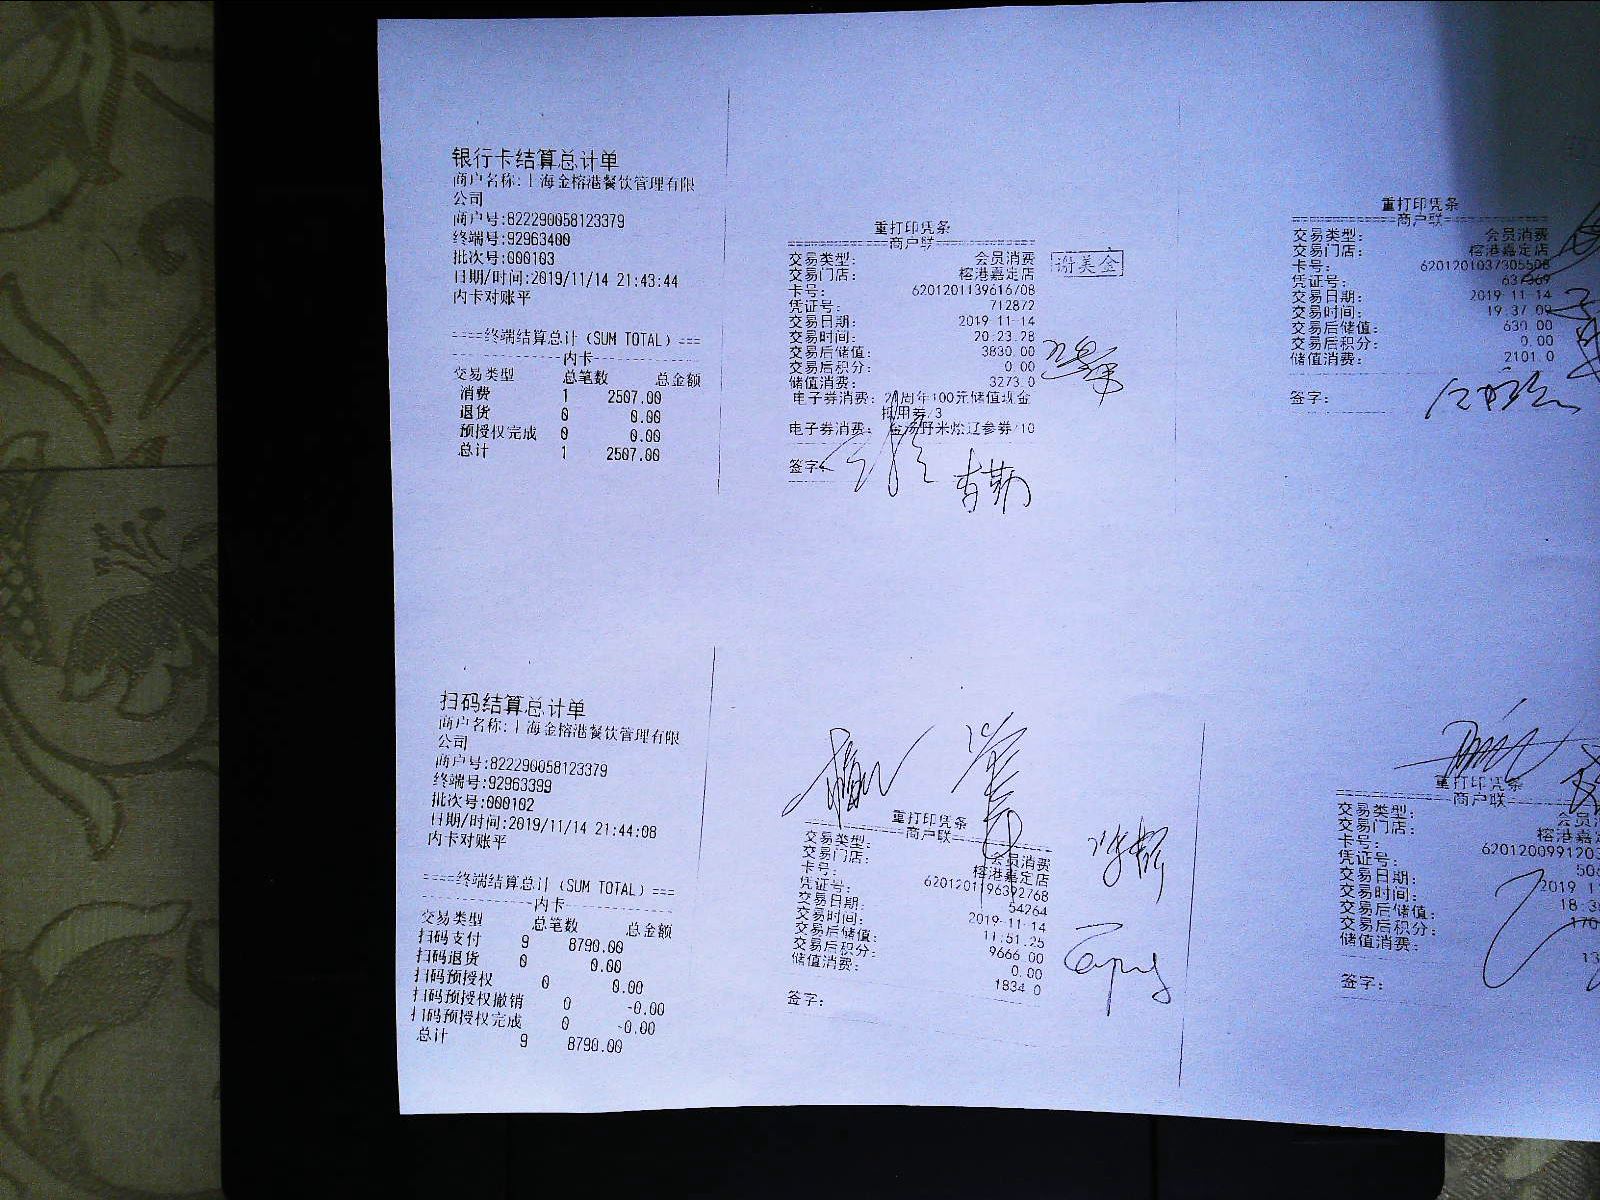 银行卡结算总计单
商户名称:上海金榕港餐饮管理有限
公司
商户号:822290058123379
终端号:92963400
批次号:000103
日期/时间:2019/11/14 21:43:44
内卡对账平
====终端结算总计(SUM TOTAL)===
内卡
交易类型 总笔数 总金额
消费 1 2507.00
退货 0 0.00
预授权完成 0 0.00
总计 1 2507.00
重打印凭条
商户联
交易类型: 会员消费
交易门店: 榕港嘉定店
卡号: 6201201139616708
凭证号: 712872
交易日期: 2019-11-14
交易时间: 20:23:28
交易后储值: 3830.00
交易后积分: 0.00
储值消费: 3273.0
电子券消费: 周年100元储值现金
抵用券/3
电子券消费: 野米烩辽参券/10
签字:
谢美金
重打印凭条
商户联
交易类型: 会员消费
交易门店: 榕港嘉定店
卡号: 6201201037305508
凭证号: 637369
交易日期: 2019-11-14
交易时间: 19:37:00
交易后储值: 630.00
交易后积分: 0.00
储值消费: 2101.0
签字:
扫码结算总计单
商户名称:上海金榕港餐饮管理有限
公司
商户号:822290058123379
终端号:92963399
批次号:000102
日期/时间:2019/11/14 21:44:08
内卡对账平
====终端结算总计(SUM TOTAL)===
内卡
交易类型 总笔数 总金额
扫码支付 9 8790.00
扫码退货 0 0.00
扫码预授权 0 0.00
扫码预授权撤销 0 -0.00
扫码预授权完成 0 -0.00
总计 9 8790.00
重打印凭条
商户联
交易类型: 会员消费
交易门店: 榕港嘉定店
卡号: 6201201196392768
凭证号: 54264
交易日期: 2019-11-14
交易时间: 11:51:25
交易后储值: 9666.00
交易后积分: 0.00
储值消费: 1834.0
签字:
重打印凭条
商户联
交易类型: 会员
交易门店: 榕港嘉
卡号: 6201200991203
凭证号: 506
交易日期: 2019-1
交易时间: 18:3
交易后储值: 170
交易后积分:
储值消费: 13
签字: